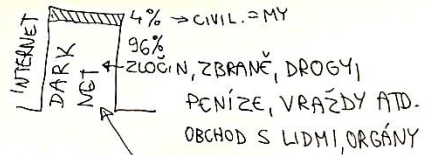 INTERNET
DARK
NET
4% → CIVIL. = MY
96%
← ZLOČIN, ZBRANĚ, DROGY,
PENÍZE, VRAŽDY ATD.
OBCHOD S LIDMI, ORGÁNY